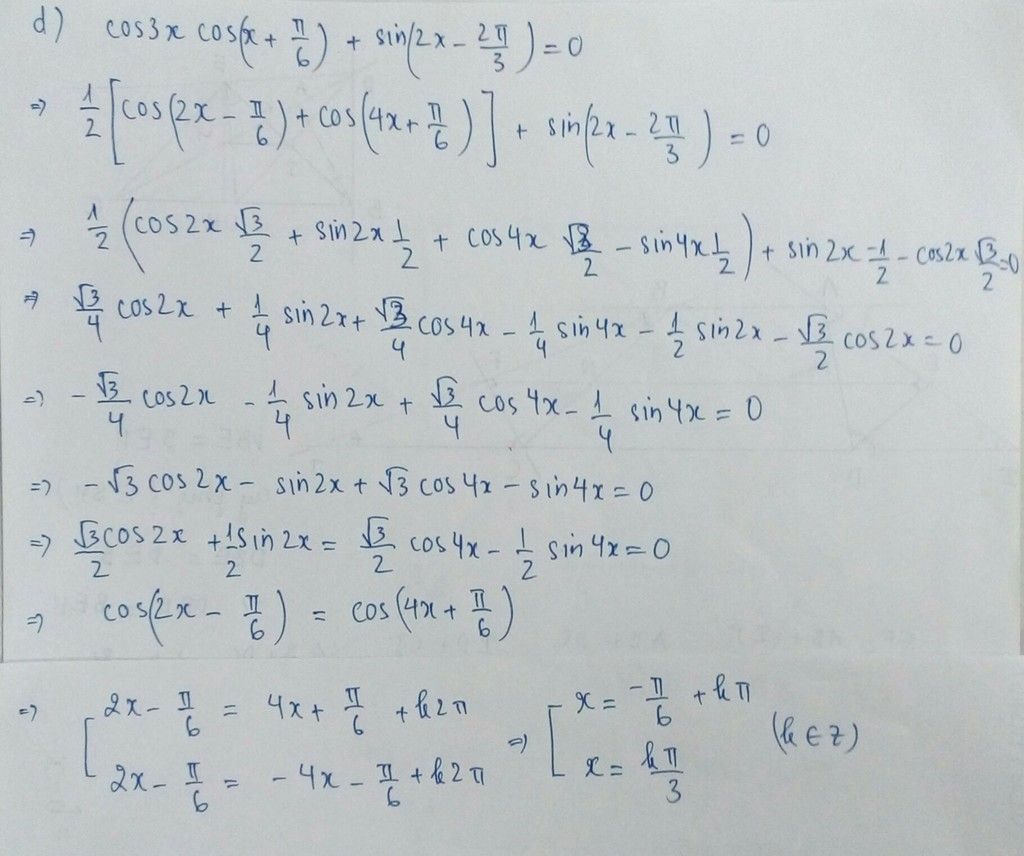 d) cos3x cos(x + π/6) + sin(2x - 2π/3) = 0
=> 1/2 [cos(2x - π/6) + cos(4x + π/6)] + sin(2x - 2π/3) = 0
=> 1/2 (cos2x √3/2 + sin2x 1/2 + cos4x √3/2 - sin4x 1/2) + sin2x -1/2 - cos2x √3/2 = 0
=> √3/4 cos2x + 1/4 sin2x + √3/4 cos4x - 1/4 sin4x - 1/2 sin2x - √3/2 cos2x = 0
=> -√3/4 cos2x - 1/4 sin2x + √3/4 cos4x - 1/4 sin4x = 0
=> -√3 cos2x - sin2x + √3 cos4x - sin4x = 0
=> √3/2 cos2x + 1/2 sin2x = √3/2 cos4x - 1/2 sin4x = 0
=> cos(2x - π/6) = cos(4x + π/6)
=> [ 2x - π/6 = 4x + π/6 + k2π => [ x = -π/6 + kπ
2x - π/6 = -4x - π/6 + k2π x = kπ/3 (k ∈ Z)